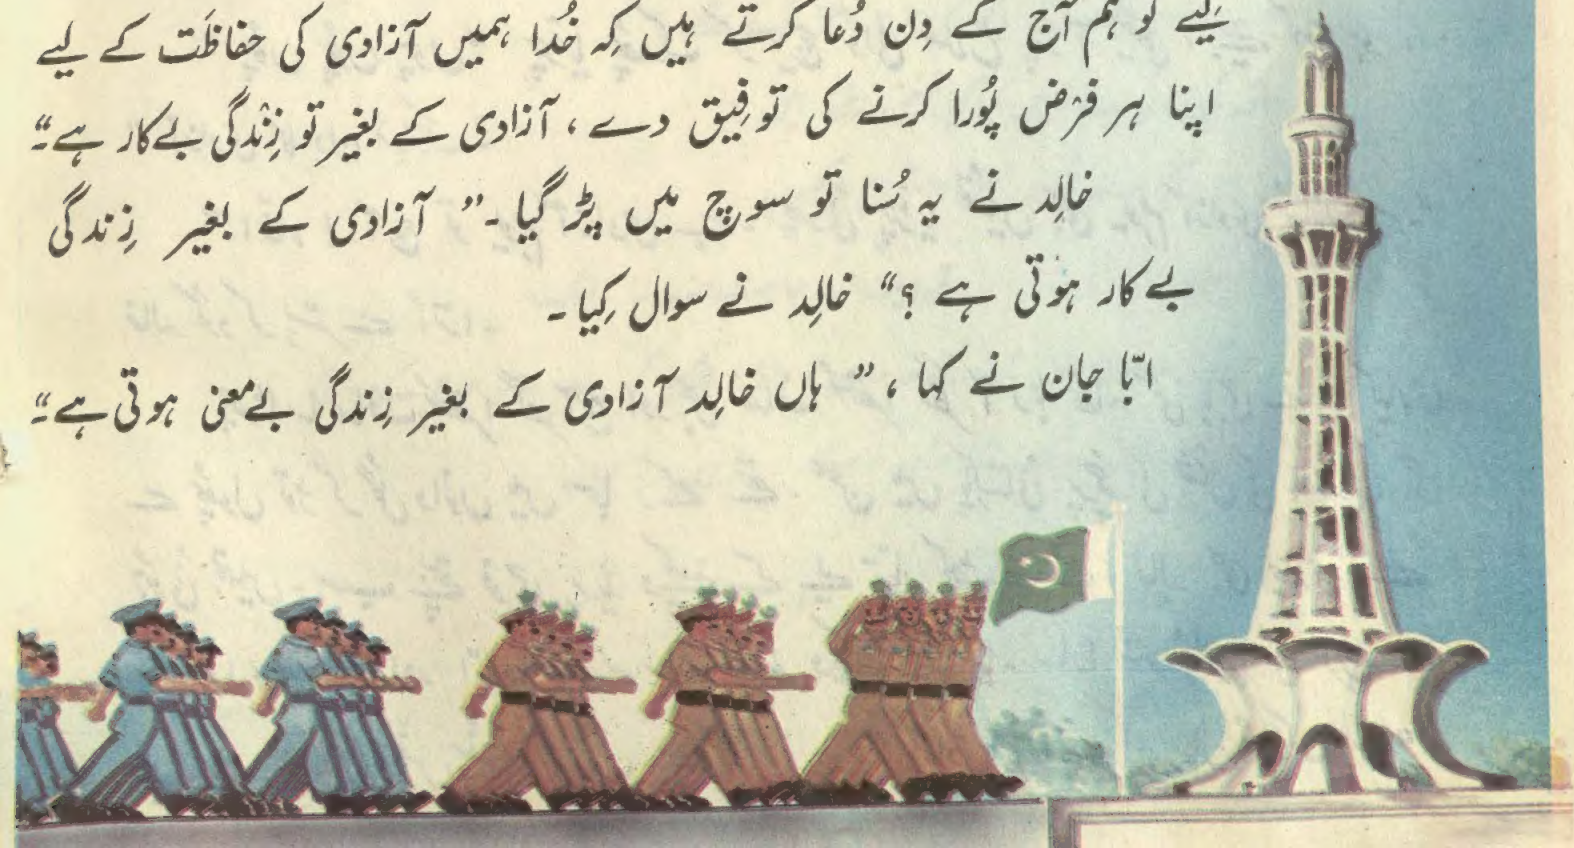 لیے تو ہم آج کے دِن دُعا کرتے ہیں کِہ خُدا ہمیں آزادی کی حفاظَت کے لیے
اپنا ہر فرْض پُورا کرنے کی توفِیق دے ، آزادی کے بغیر تو زِنْدگی بےکار ہے۔“
خالِد نے یہ سُنا تو سوچ میں پڑ گیا ۔” آزادی کے بغیر زِندگی
بےکار ہوتی ہے ؟“ خالِد نے سوال کِیا ۔
ابّا جان نے کہا ، ” ہاں خالِد آزادی کے بغیر زِندگی بےمعنی ہوتی ہے۔“